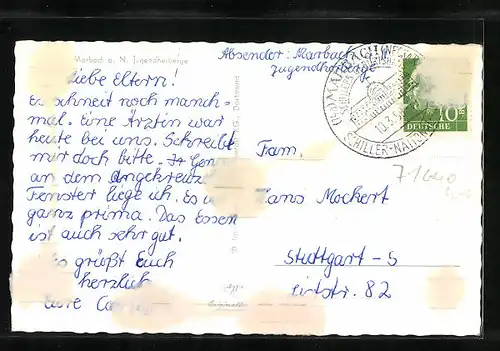 Marbach a. N. Jugendherberge
Liebe Eltern!
Es schneit noch manch-
mal. Eine Ärztin war
heute bei uns. Schreibt
mir doch bitte. In
an dem angekreuz
Fenster liege ich. Es
ganz prima. Das Essen
ist auch sehr gut.
Es grüßt Euch
herzlich
Eure
Absender: Marbach a. N.
Jugendherberge
MARBACH (NECKAR)
SCHILLER-NATIO
10.3.
10
DEUTSCHE
Fam.
Hans Mockert
Stuttgart-S
str. 82